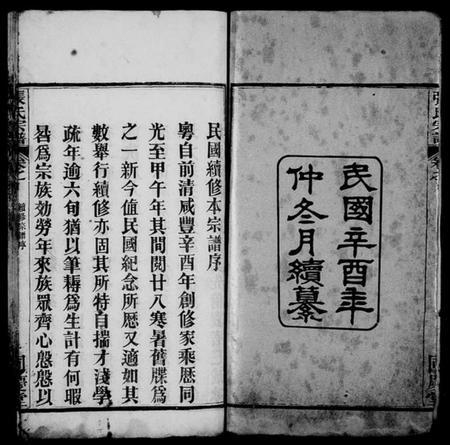 民國辛酉年
仲冬月續纂
民國續修本宗譜序
粵自前清咸豐辛酉年創修家乘歷同
光至甲午年其間閱廿八寒暑舊牒為
之一新今值民國紀念所歷又適如其
數舉行續修亦固其所特自揣才淺學
疏年逾六旬猶以筆耨為生計有何暇
晷為宗族効勞年來族眾齊心慇慇以
張氏宗譜
卷之
續修宗譜序